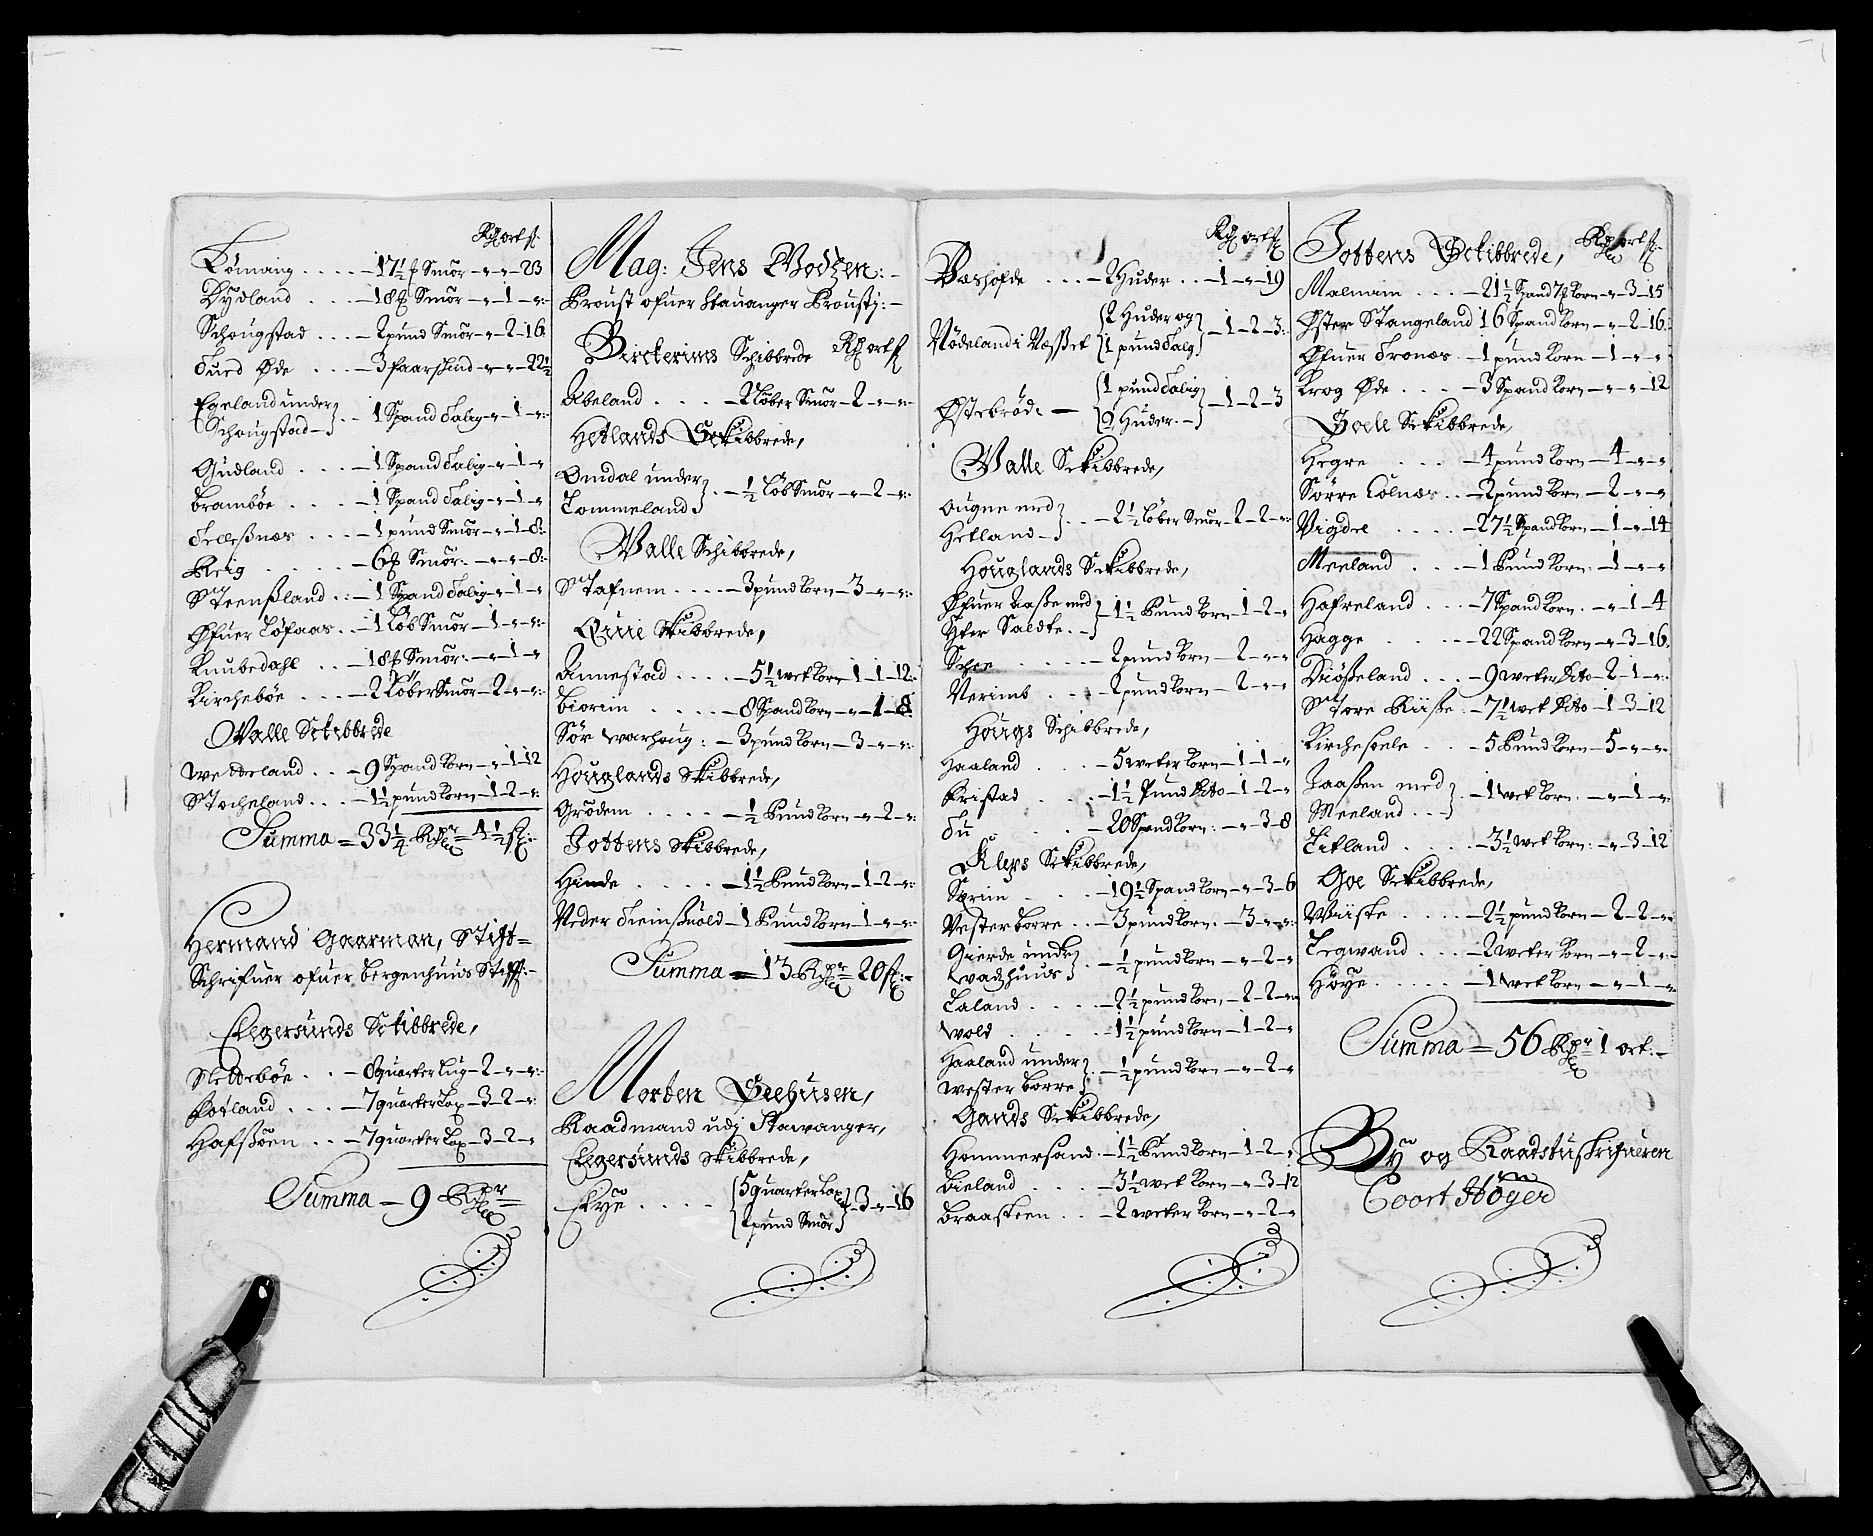 Rdr ort ß
Lömaing .... 17½ ℔ Smör - „ - „ - 23
Dydland ... 18 ℔ Smör - „ - 1 - „
Schougstad ... 2 pund Smör - „ - 2 - 16
Tued Øde ... 3 faarskind - „ - „ - 22½
Egeland under
Schougstad - 1 Spand Talig - „ - 1 - „
Gudland ... 1 Spand Talig - „ - 1 - „
Bramböe .... 1 Spand Talig - „ - 1 - „
Telleßnæs ... 1 pund Smör - „ - 1 - 8
Reig .... 6 ℔ Smör - „ - „ - 8
Steenßland .. 1 Spand Talig - „ - 1 - „
Øfuer Löfaas .. 1 Löb Smör - 1 - „ - „
Knubedahl .. 18 ℔ Smör - „ - 1 - „
Kircheböe ... 2 Löber Smör - 2 - „ - „
Walle Schibbrede
Wetteland .. 9 Spand korn - „ - 1 - 12
Stocheland ... 1½ pund korn - 1 - 2 - „
Summa = 33¼ Rdr 4½ ß
Hermand Gaarman, Stift=
Schrifuer ofuer Bergenhuus Stift
Egersunds Schibbrede,
Netteböe .. 8 quarter Lax - 2 - „ - „
Fotland ... 7 quarter Lax - 3 - 2 - „
Hafsöen .. 7 quarter Lax - 3 - 2 - „
Summa - 9 Rdr
Mag: Jens Godzen
Proust ofuer Stauanger Prousti
Birckerims Schibbrede Rdr ort ß
Abeland ... 2 Löber Smör - 2 - „ - „
Hetlands Schibbrede,
Omdal under
Lommeland - ½ Löb Smör - „ - 2 - „
Walle Schibbrede,
Stafnem .... 3 pund korn - 3 - „ - „
Quie Schibbrede,
Annestad .... 5½ wet korn 1 - 1 - 12
Biorim .... 8 Spand korn - „ - 1 - 8
Sör Warhoug: - 3 pund korn - 3 - „ - „
Houglands Schibbrede,
Grödem .... ½ Pund korn - „ - 2 - „
Jottens Schibbrede,
Hinde ..... 1½ Pund korn - 1 - 2 - „
Neder Tieinßuold - 1 Pund korn 1 - „ - „
Summa = 13 Rdr 20 ß
Morten Seehusen,
Raadmand udj Stawanger,
Egersunds Schibbrede,
Eyje .... 5 quarter Lax
2 pund Smör 3 - „ - 16
Rdr ort ß
Væshofde ... 2 Huder .. 1 - „ - 19
Nödeland i Næsset 2 Huder og
1 pund Talg - 1 - 2 - 3
Østebröd - 1 pund Talig
2 Huder - 1 - 2 - 3
Walle Schibbrede,
Ougne med
Hetland - 2½ Löber Smör - 2 - 2 - „
Houglands Schibbrede,
Øfuer Aaße med
Yter Saldte - 1½ Pund korn 1 - 2 - „
Schee .... 2 pund korn - 2 - „ - „
Verimb ... 2 pund korn - 2 - „ - „
Hougs Schibbrede,
Haaland ... 5 weter korn - 1 - 1 - „
Friestad ... 1½ Pund dito - 1 - 2 - „
Tu ... 20 Spand korn - „ - 3 - 8
Kleps Schibbrede,
Særim ... 19½ Spand korn - „ - 3 - 6
Vester Borre .. 3 pund korn - 3 - „ - „
Gierde under
Wadhuus - ½ pund korn - „ - 2 - „
Laland .... 2½ pund korn - 2 - 2 - „
Wold .... 1½ pund korn - 1 - 2 - „
Haaland under
Wester Borre - ½ pund korn - „ - 2 - „
Gands Schibbrede,
Hommersand .. 1½ Pund korn - 1 - 2 - „
Bieland ... 3½ wet korn - „ - 3 - 12
Braasteen .. 2 weter korn - „ - 2 - „
Jottens Schibbrede, Rdr ort ß
Malmim ... 21½ Spand 7 ℔ korn - „ - 3 - 15
Øster Stangeland 16 Spand korn - „ - 2 - 16
Øfuer Tronæs .. 1 pund korn - 1 - „ - „
Krog Øde ... 3 Spand korn - „ - „ - 12
Soele Schibbrede,
Hegre ... 4 pund korn - 4 - „ - „
Sörre Colnæs .. 2 pund korn - 2 - „ - „
Vigdel .... 27½ Spand korn - 1 - „ - 14
Meeland ... 1 Pund korn - 1 - „ - „
Hafreland ... 7 Spand korn - „ - 1 - 4
Hagge .... 22 Spand korn - „ - 3 - 16
Diößeland ... 9 weter dito - 2 - 1 - „
Store Riiße .. 7½ wet dito - 1 - 3 - 12
Kirchesoele ... 5 Pund korn - 5 - „ - „
Jaaßen med
Meeland - 1 wet korn - „ - 1 - „
Titland .... 3½ wet korn - „ - 3 - 12
Goe Schibbrede,
Wiiste .... 2½ pund korn - 2 - 2 - „
Tegwand ... 2 weter korn - „ - 2 - „
Höye ..... 1 wet korn - „ - 1 - „
Summa = 56 Rdr 1 ort
By og Raadstuskrifueren
Coort Höyer